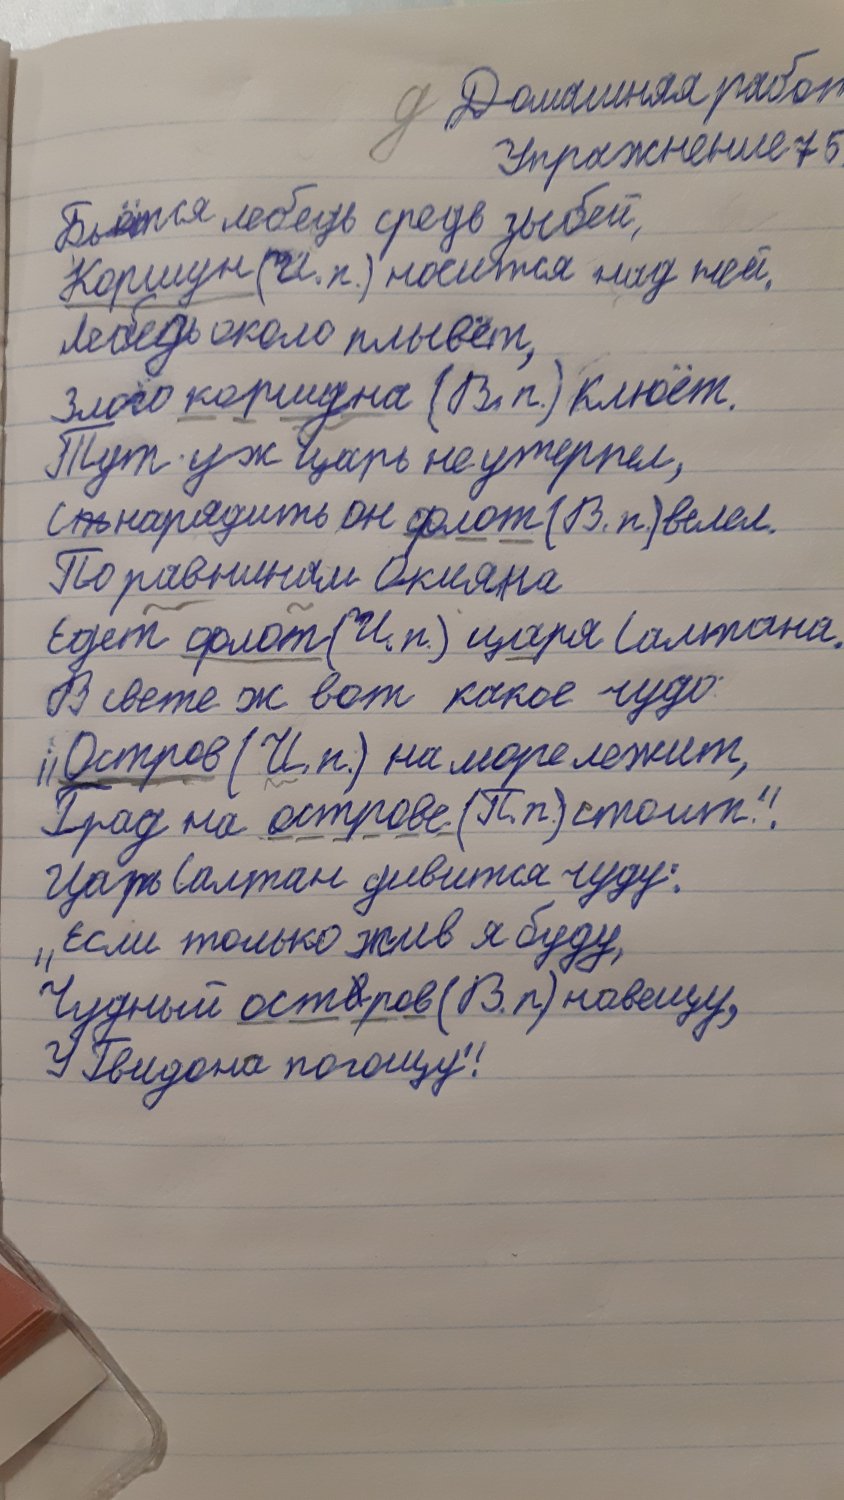 Домашняя работ
Упражнение 75
Бьётся лебедь средь зыбей,
Коршун (И.п.) носится над ней.
Лебедь около плывёт,
Злого коршуна (В.п.) клюёт.
Тут уж царь не утерпел,
Снарядить он флот (В.п.) велел.
По равнинам Окияна
Едет флот (И.п.) царя Салтана.
В свете ж вот какое чудо:
„Остров (И.п.) на море лежит,
Град на острове (П.п.) стоит".
Царь Салтан дивится чуду:
„Если только жив я буду,
Чудный остров (В.п.) навещу,
У Гвидона погощу"!